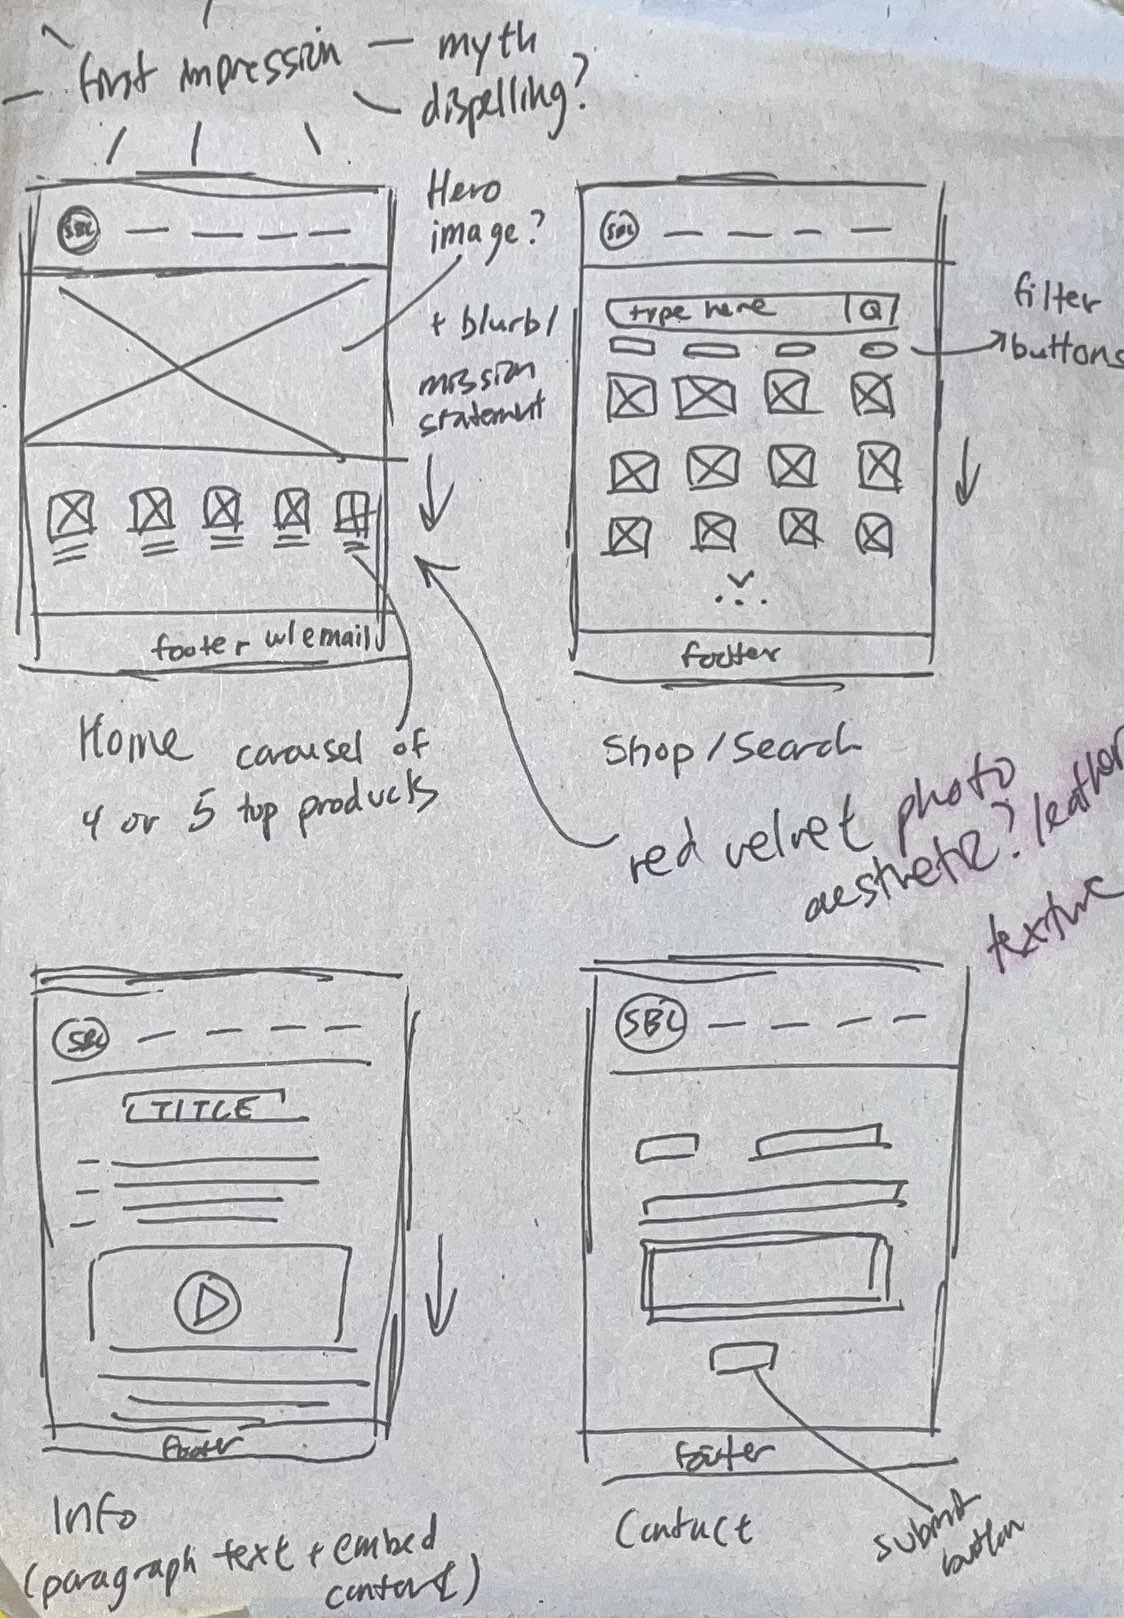 first impression
myth
dispelling?
Hero
image?
+ blurb/
mission
statement
SBC
footer w/ email
Home
carousel of
4 or 5 top products
SBC
type here
Q
filter
buttons
footer
Shop/Search
red velvet photo
aesthetic? leather
texture
SBC
TITLE
footer
Info
(paragraph text + embed
content)
SBC
footer
Contact
submit
button